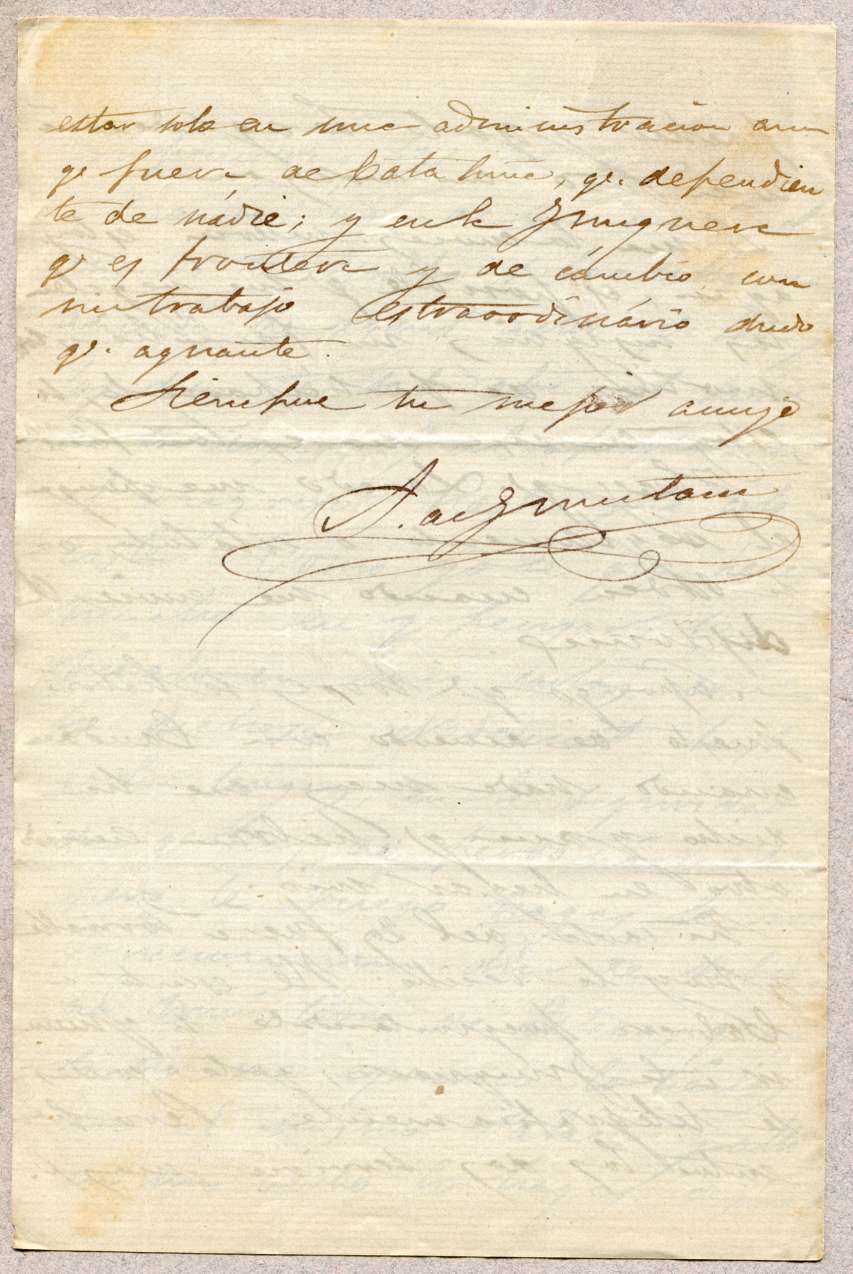 estar solo en una administracion aun
qe. fuera de Cataluña, qe. dependien
te de nádie; y en la Junquera
qe es frontera y de cámbio, con
un trabajo estraordinário dudo
qe. aguante.
Siempre tu mejor amigo
A. de